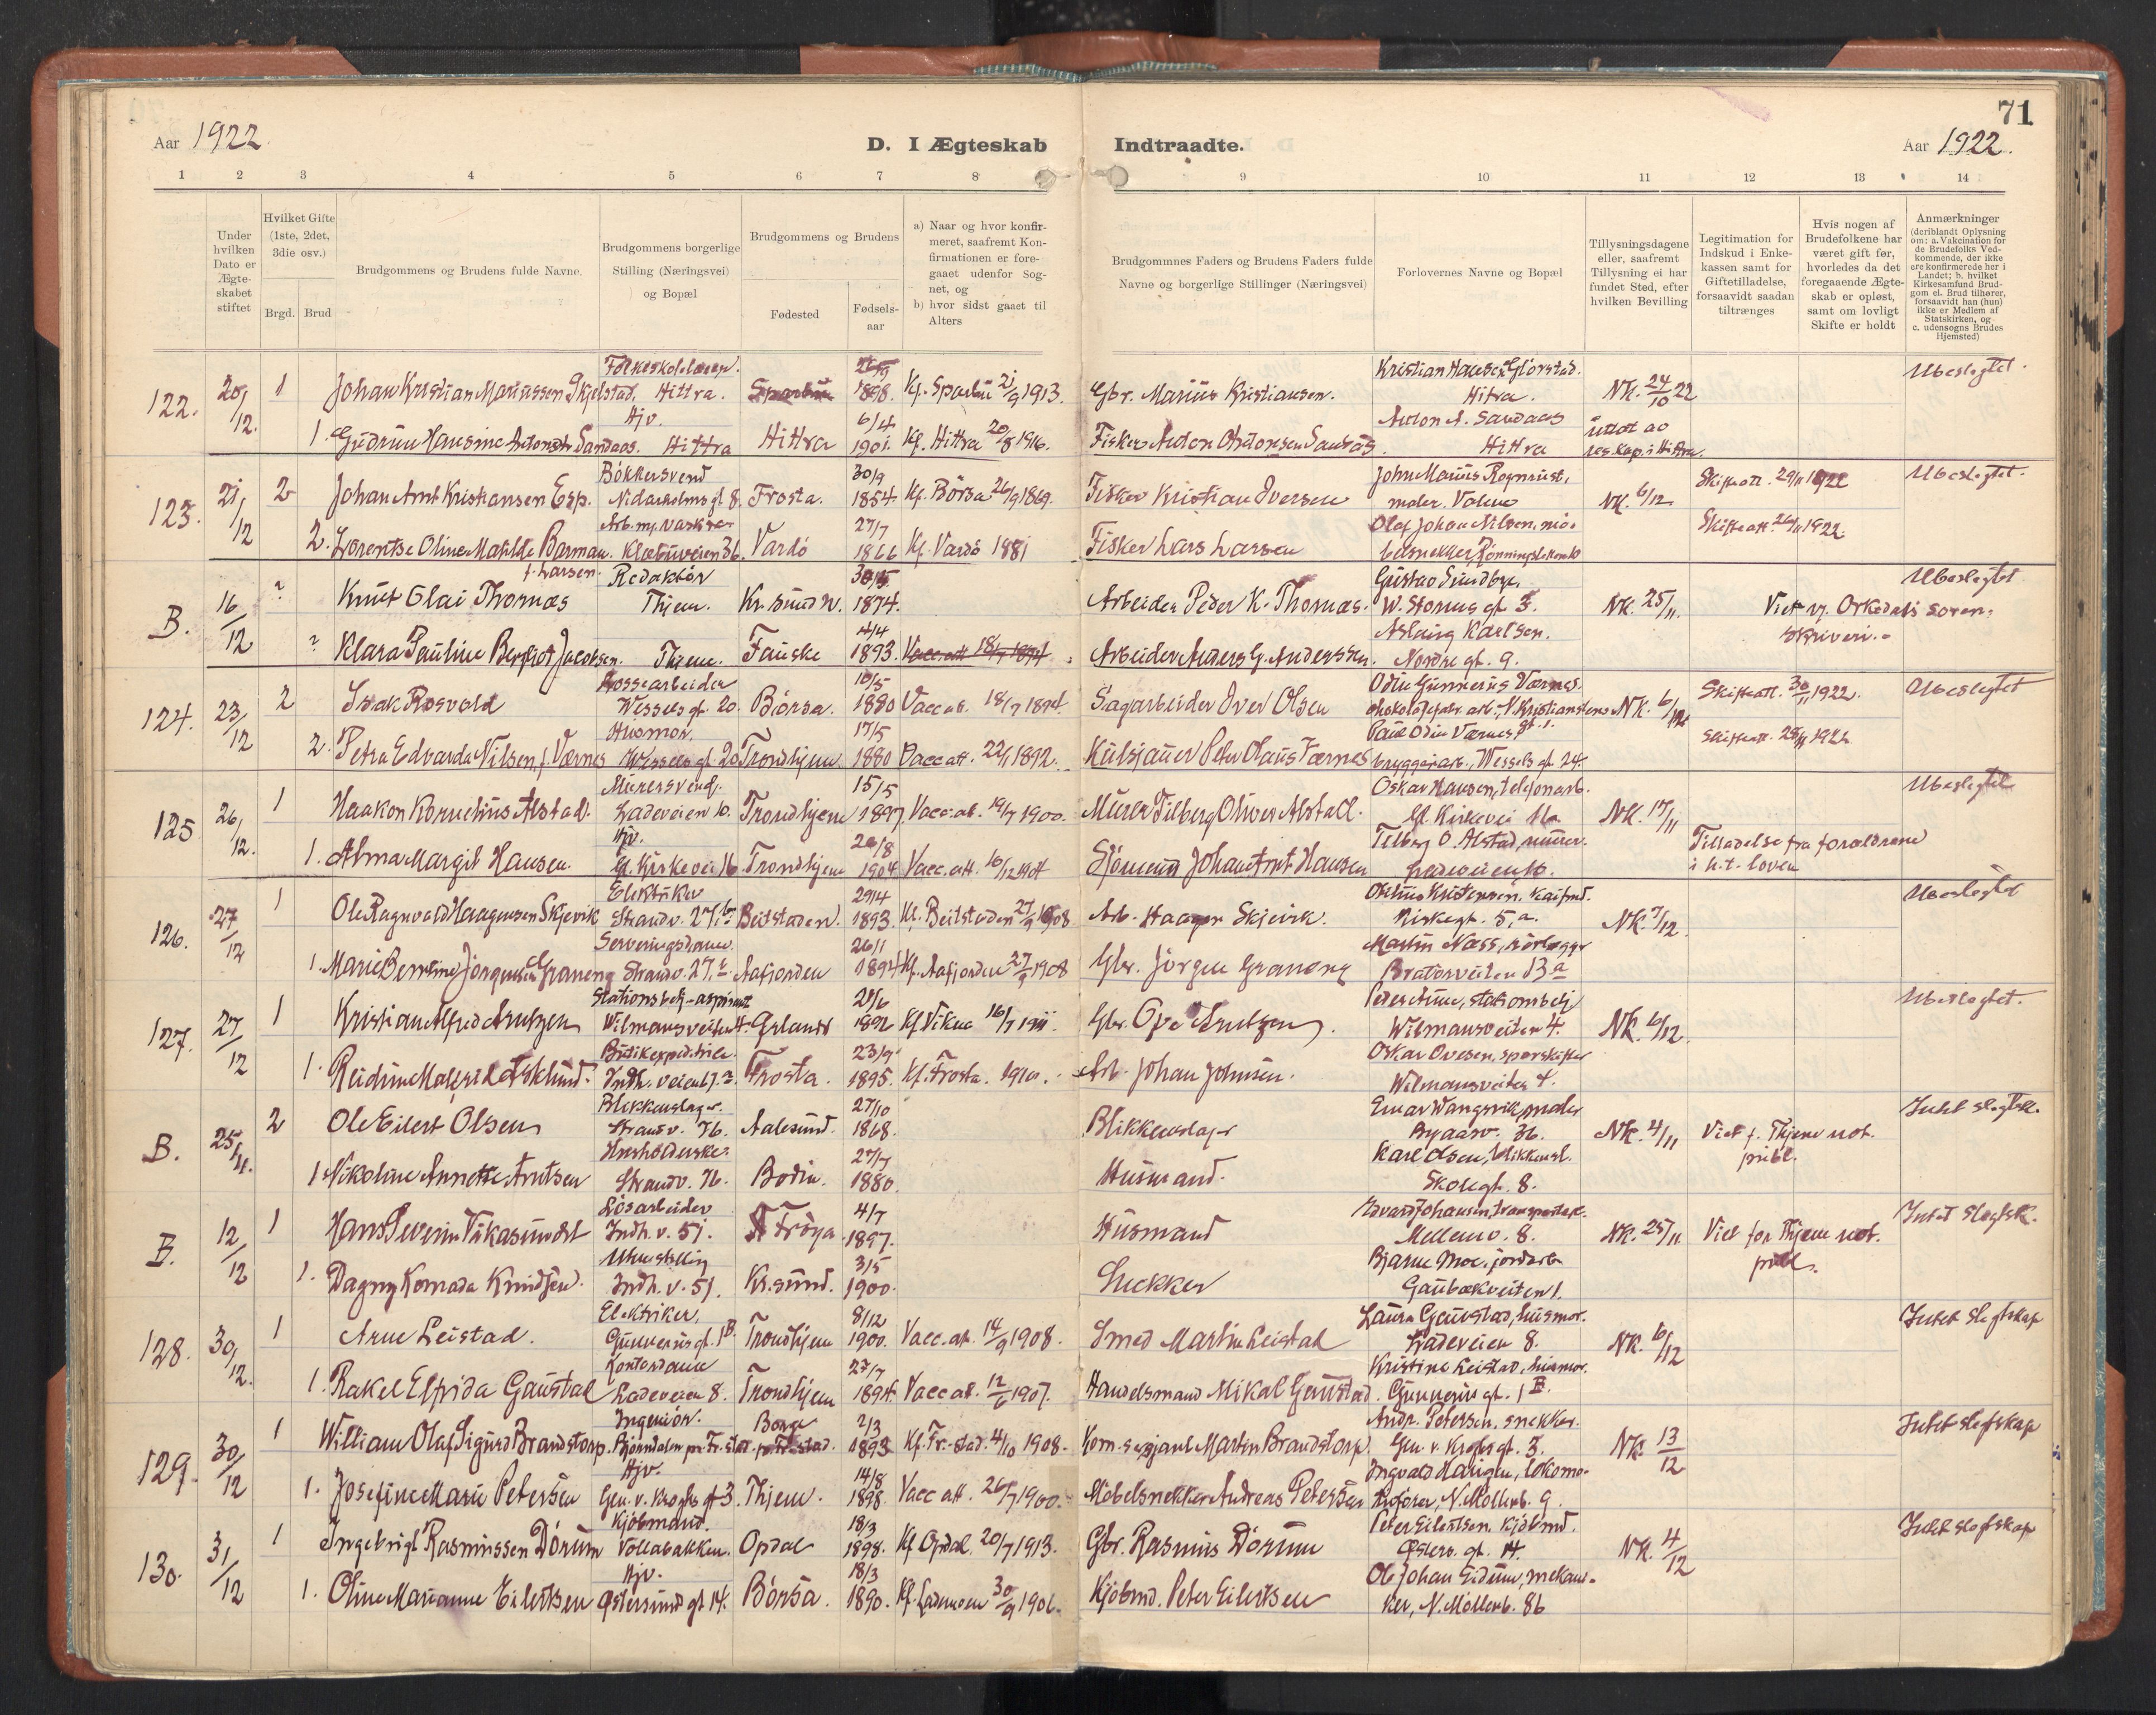 71
Aar 1922.
D. I Ægteskab
Indtraadte.
Aar 1922.
1 2 3 4 5 6 7 8 9 10 11 12 13 14
Under hvilken Dato er Ægte-skabet stiftet
Hvilket Gifte (1ste, 2det, 3die osv.)
Brgd. Brud
Brudgommens og Brudens fulde Navne.
Brudgommens borgerlige Stilling (Næringsvei) og Bopæl
Brudgommens og Brudens
Fødested
Fødsels-aar
a) Naar og hvor konfir-meret, saafremt Kon-firmationen er fore-gaaet udenfor Sog-net, og
b) hvor sidst gaaet til Alters
Brudgommnes Faders og Brudens Faders fulde Navne og borgerlige Stillinger (Næringsvei)
Forlovernes Navne og Bopæl
Tillysningsdagene eller, saafremt Tillysning ei har fundet Sted, efter hvilken Bevilling
Legitimation for Indskud i Enke-kassen samt for Giftetilladelse, forsaavidt saadan tiltrænges
Hvis nogen af Brudefolkene har været gift før, hvorledes da det foregaaende Ægte-skab er opløst, samt om lovligt Skifte er holdt
Anmærkninger (deriblandt Oplysning om: a. Vakcination for de Brudefolks Ved-kommende, der ikke ere konfirmerede her i Landet; b. hvilket Kirkesamfund Brud-gom el. Brud tilhører, forsaavidt han (hun) ikke er Medlem af Statskirken, og c. udensogns Brudes Hjemsted)
Kristian Hansen Glørstad.
122. 20/12. 1 Johan Kristian Mariussen Skjelstad. Hittra. Sparbu 1898. Kf. Sparbu 21/9 1913. Gbr. Marius Kristiansen. Hitra. NK. 24/10 22 Ubeslegtet.
Hjv. 6/4 Anton A. Sandaas
1. Gudrun Hansine Antonsdtr Sandaas. Hittra Hittra 1901. Kf. Hittra 20/8 1916. Fisker Anton Antonsen Sandaas. Hittra res. kap. i Hittra.
Bøkkersvend 30/9 John Marius Rognrust,
123. 21/12 2 Johan Arnt Kristiansen Esp. Nidarholms gt 8. Frosta. 1854 Kf. Börsa 26/9 1869. Fisker Kristian Iversen maler. NK. 6/12 Skifteatt. 29/11 1922 Ubeslegtet.
27/7 Olaf Johan Nilsen,
2. Lorentse Oline Matilde Barman. Klæbuveien 36. Vardö 1866 Kf. Vardö 1881 Fisker Lars Larsen Skifteatt. 1922.
f. Larsen.
Redaktör Gustav Sundbye,
B. 16/12 ? Knut Olai Thomas Thjem. Kr.sund N. 1874. Arbeider Peder K. Thomas. NK. 25/11. Viet v. Orkedals soren-skriveri. Ubeslegtet
4/4 Aslaug Karlsen.
? Klara Pauline Bergliot Jacobsen. Thjem. Fauske 1893. Vacc. att. Arbeider Anders G. Anderssen. Nordre gt. 9.
10/5 Odin Gunnerius Værnes.
124. 23/12 2 Isak Rosvold Wessels gt. 20. Börsa. 1880 Vacc. att. 18/7 1894. Sagarbeider Iver Olsen NK. 6/12 Skifteatt. 30/11 1922. Ubeslegtet
Husmor. 17/5 Paul Odin Værnes,
2. Petra Edvarda Nilsen, f. Værnes Wessels gt 20 Trondhjem 1880 Vacc att. 22/1 1892. Kulsjauer Peter Olaus Værnes bryggeriarb., Wessels gt. 24. Skifteatt. 1922
Murersvend. 15/5 Oskar Hansen, telefonarb.
125 26/12. 1 Haakon Kornelius Alstad. Ladeveien 10. Trondhjem 1897. Vacc. att. 19/7 1900. Murer Tilberg Oliver Alstad. Gl. Kirkevei NK. 17/11 Ubeslegtet
Hjv. 20/8 Tilberg O. Alstad, murer.
1. Alma Margit Hansen. Gl. Kirkevei 16. Trondhjem 1904 Vacc. att. 16/12 1904 Sjömann Johan Arnt Hansen Ladeveien 10. Tilladelse fra forældrene i h.t. loven
Elektriker 29/4
126. 27/12 1 Ole Ragnvald Haagensen Skjevik Strandv. 27. Beitstaden. 1893. Kf. Beitstaden 27/9 1908 Arb. Haagen Skjevik. Kirkegt. 5, a. NK. 7/12 Ubeslegtet
Serveringsdame. 26/1 Martin Næss, rörlegger
1. Marie Jörgensen Graneng Strandv. 27. Aafjorden 1894 Kf. Aafjorden 27/9 1908 Gbr. Jörgen Graneng Bratörveiten 13a
Stationsbetj-aspirant 21/6 Peter Aune, stationsbetj
127. 27/12 1 Kristian Alfred Arntzen Wilmansveiten 4. 1892 Kf. Vikna 16/7 1911. Gbr. Arntzen. Wilmansveiten 4. NK. 6/12. Ubeslegtet.
Butikexpeditrice. 23/9 Oskar Ovesen, sporskifter
1. Reidun Asklund. Indh. veien Frosta. 1895. Kf. Frosta. 1910. Arb. Johan Johnsen. Wilmansveiten 4.
Blikkenslager. 27/10 Einar Wangsvik, maler
B. 25/11. 2 Ole Eilert Olsen Strandv. 76. Aalesund. 1868. Blikkenslager Byaasv. 36. NK. 4/11 Viet f. Thjem not. publ. Intet slegtsk.
Husholderske. 27/7 Karl Olsen, blikkensl.
1 Nikoline Annette Arntsen Strandv. 76. Bodin. 1880. Husmand. Skolegt. 8.
Lösarbeider 4/7 Edvard Johansen,
B. 12/12 1 Hans Severin Vikasundet Indh. v. 51. Fröya. 1897. Husmand Mellemv. 8. NK. 25/11 Viet for Thjem not. publ. Intet slegtsk.
Uten stilling 3/5 Bjarne Moe, jordarb.
1. Dagny Komada Knudsen. Indh. v. 51. Kr.sund. 1900. Snekker Gaubækveiten 1.
Elektriker, 8/12 Laura Gaustad, husmor.
128. 30/12. 1 Arne Leistad. Gunnerus gt. 1B. Trondhjem 1900. Vacc. att. 14/9 1908. Smed Martin Leistad Ladeveien 8. NK. 6/12 Intet slegtskap
Kontordame 27/7 Kristine Leistad, husmor.
1. Rakel Elfrida Gaustad Ladeveien 8. Trondhjem 1894. Vacc. att. 12/6 1907. Handelsmand Mikal Gaustad. Gunnerus gt. 1B.
Ingeniör. Borge 2/3 Andr. Petersen, snekker.
129. 30/12 1 William Olaf Sigurd Brandstorp. Bjørndalen pr Fr.stad. pr. Fr.stad. 1893 Kf. Fr.stad. 4/10 1908. Korn. sersjant Martin Brandstorp Gen. v. Kroghs gt. 3. NK. 13/12 Intet slegtskap
Hjv. 14/8
1. Josefine Marie Petersen Gen. v. Kroghs gt 3. Thjem. 1898. Vacc att. 26/7 1900. Möbelsnekker Andreas Petersen N. Mollenb. 9.
Kjöbmand. 18/3 Peter Eilertsen, kjöbmd.
130. 31/12 1 Ingebrigt Rasmussen Dörum Vollabakken. Opdal 1898. Kf Opdal. 20/7 1913. Gbr. Rasmus Dörum Østers. gt. 14. NK. 4/12 Intet slegtskap
Hjv. 18/3 Ole Johan Eidum, mekani-
1. Oline Marianne Eilertsen Østersund gt 14. Börsa. 1890. Kf. Lademoen 30/9 1906. Kjöbmd. Peter Eilertsen ker, N. Mollenb. 86